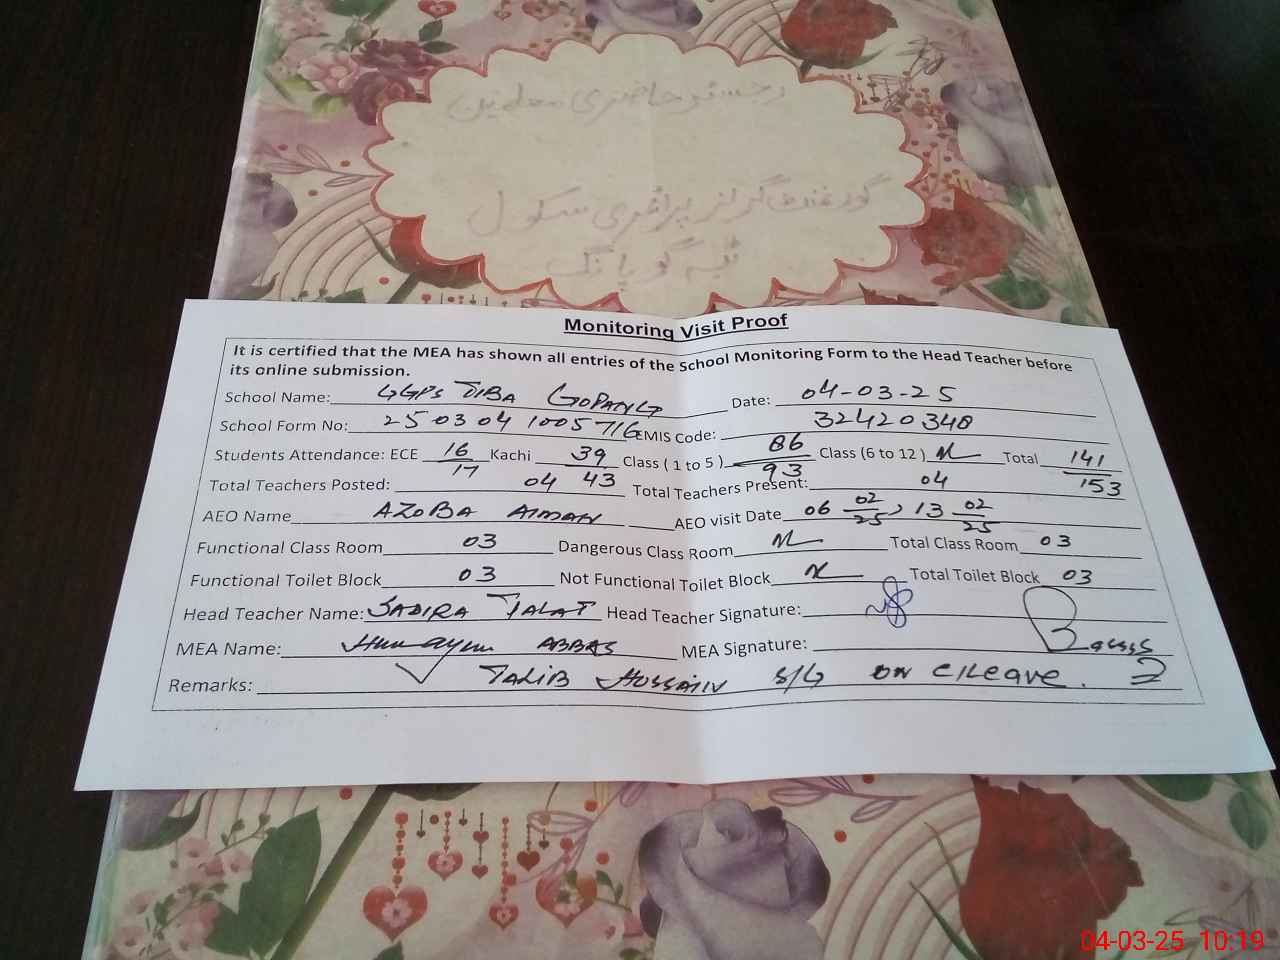 رجسٹر حاضری معلمین
گورنمنٹ گرلز پرائمری سکول
ٹبہ گوپانگ
Monitoring Visit Proof
It is certified that the MEA has shown all entries of the School Monitoring Form to the Head Teacher before
its online submission.
School Name: GGPS TIBA GOPANG Date: 04-03-25
School Form No: 25 03 04 1005 716 EMIS Code: 32420348
Students Attendance: ECE 16/17 Kachi 39/43 Class ( 1 to 5 ) 86/93 Class (6 to 12 ) Total 141/153
Total Teachers Posted: 04 Total Teachers Present: 04
AEO Name AZOBA AIMAN AEO visit Date 06 02/25, 13 02/25
Functional Class Room 03 Dangerous Class Room Total Class Room 03
Functional Toilet Block 03 Not Functional Toilet Block Total Toilet Block 03
Head Teacher Name: SADIRA TALAT Head Teacher Signature:
MEA Name: Humayun ABBAS MEA Signature:
Remarks: TALIB HUSSAIN S/G ON C/Leave.
04-03-25 10:19